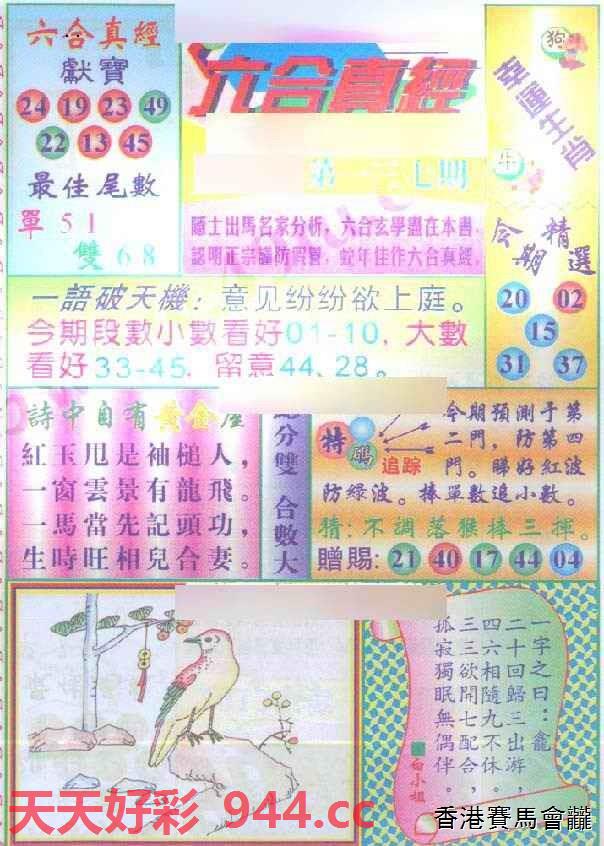 六合真經
獻寶
24 19 23 49
22 13 45
最佳尾數
單 51
雙 68
六合真經
隱士出馬名家分析，六合玄學盡在本書，
認明正宗謹防假冒，蛇年佳作六合真經。
狗
幸運生肖
牛
今期精選
20 02
15
31 37
一語破天機：意见纷纷欲上庭。
今期段數小數看好01-10，大數
看好33-45，留意44、28。
詩中自有黃金屋
紅玉甩是袖槌人，
一窗雲景有龍飛。
一馬當先記頭功，
生時旺相兒合妻。
分雙 合數大
特碼
追踪
今期預測于第
二門，防第四
門。睇好紅波
防綠波。捧單數追小數。
猜：不調落猴捧三揮。
贈賜：21 40 17 44 04
一字之曰：龕
二十回歸三出游，
四六相隨九不休。
三三欲開七配合，
孤寂獨眠無偶伴。
白小姐
天天好彩 944.cc
香港賽馬會